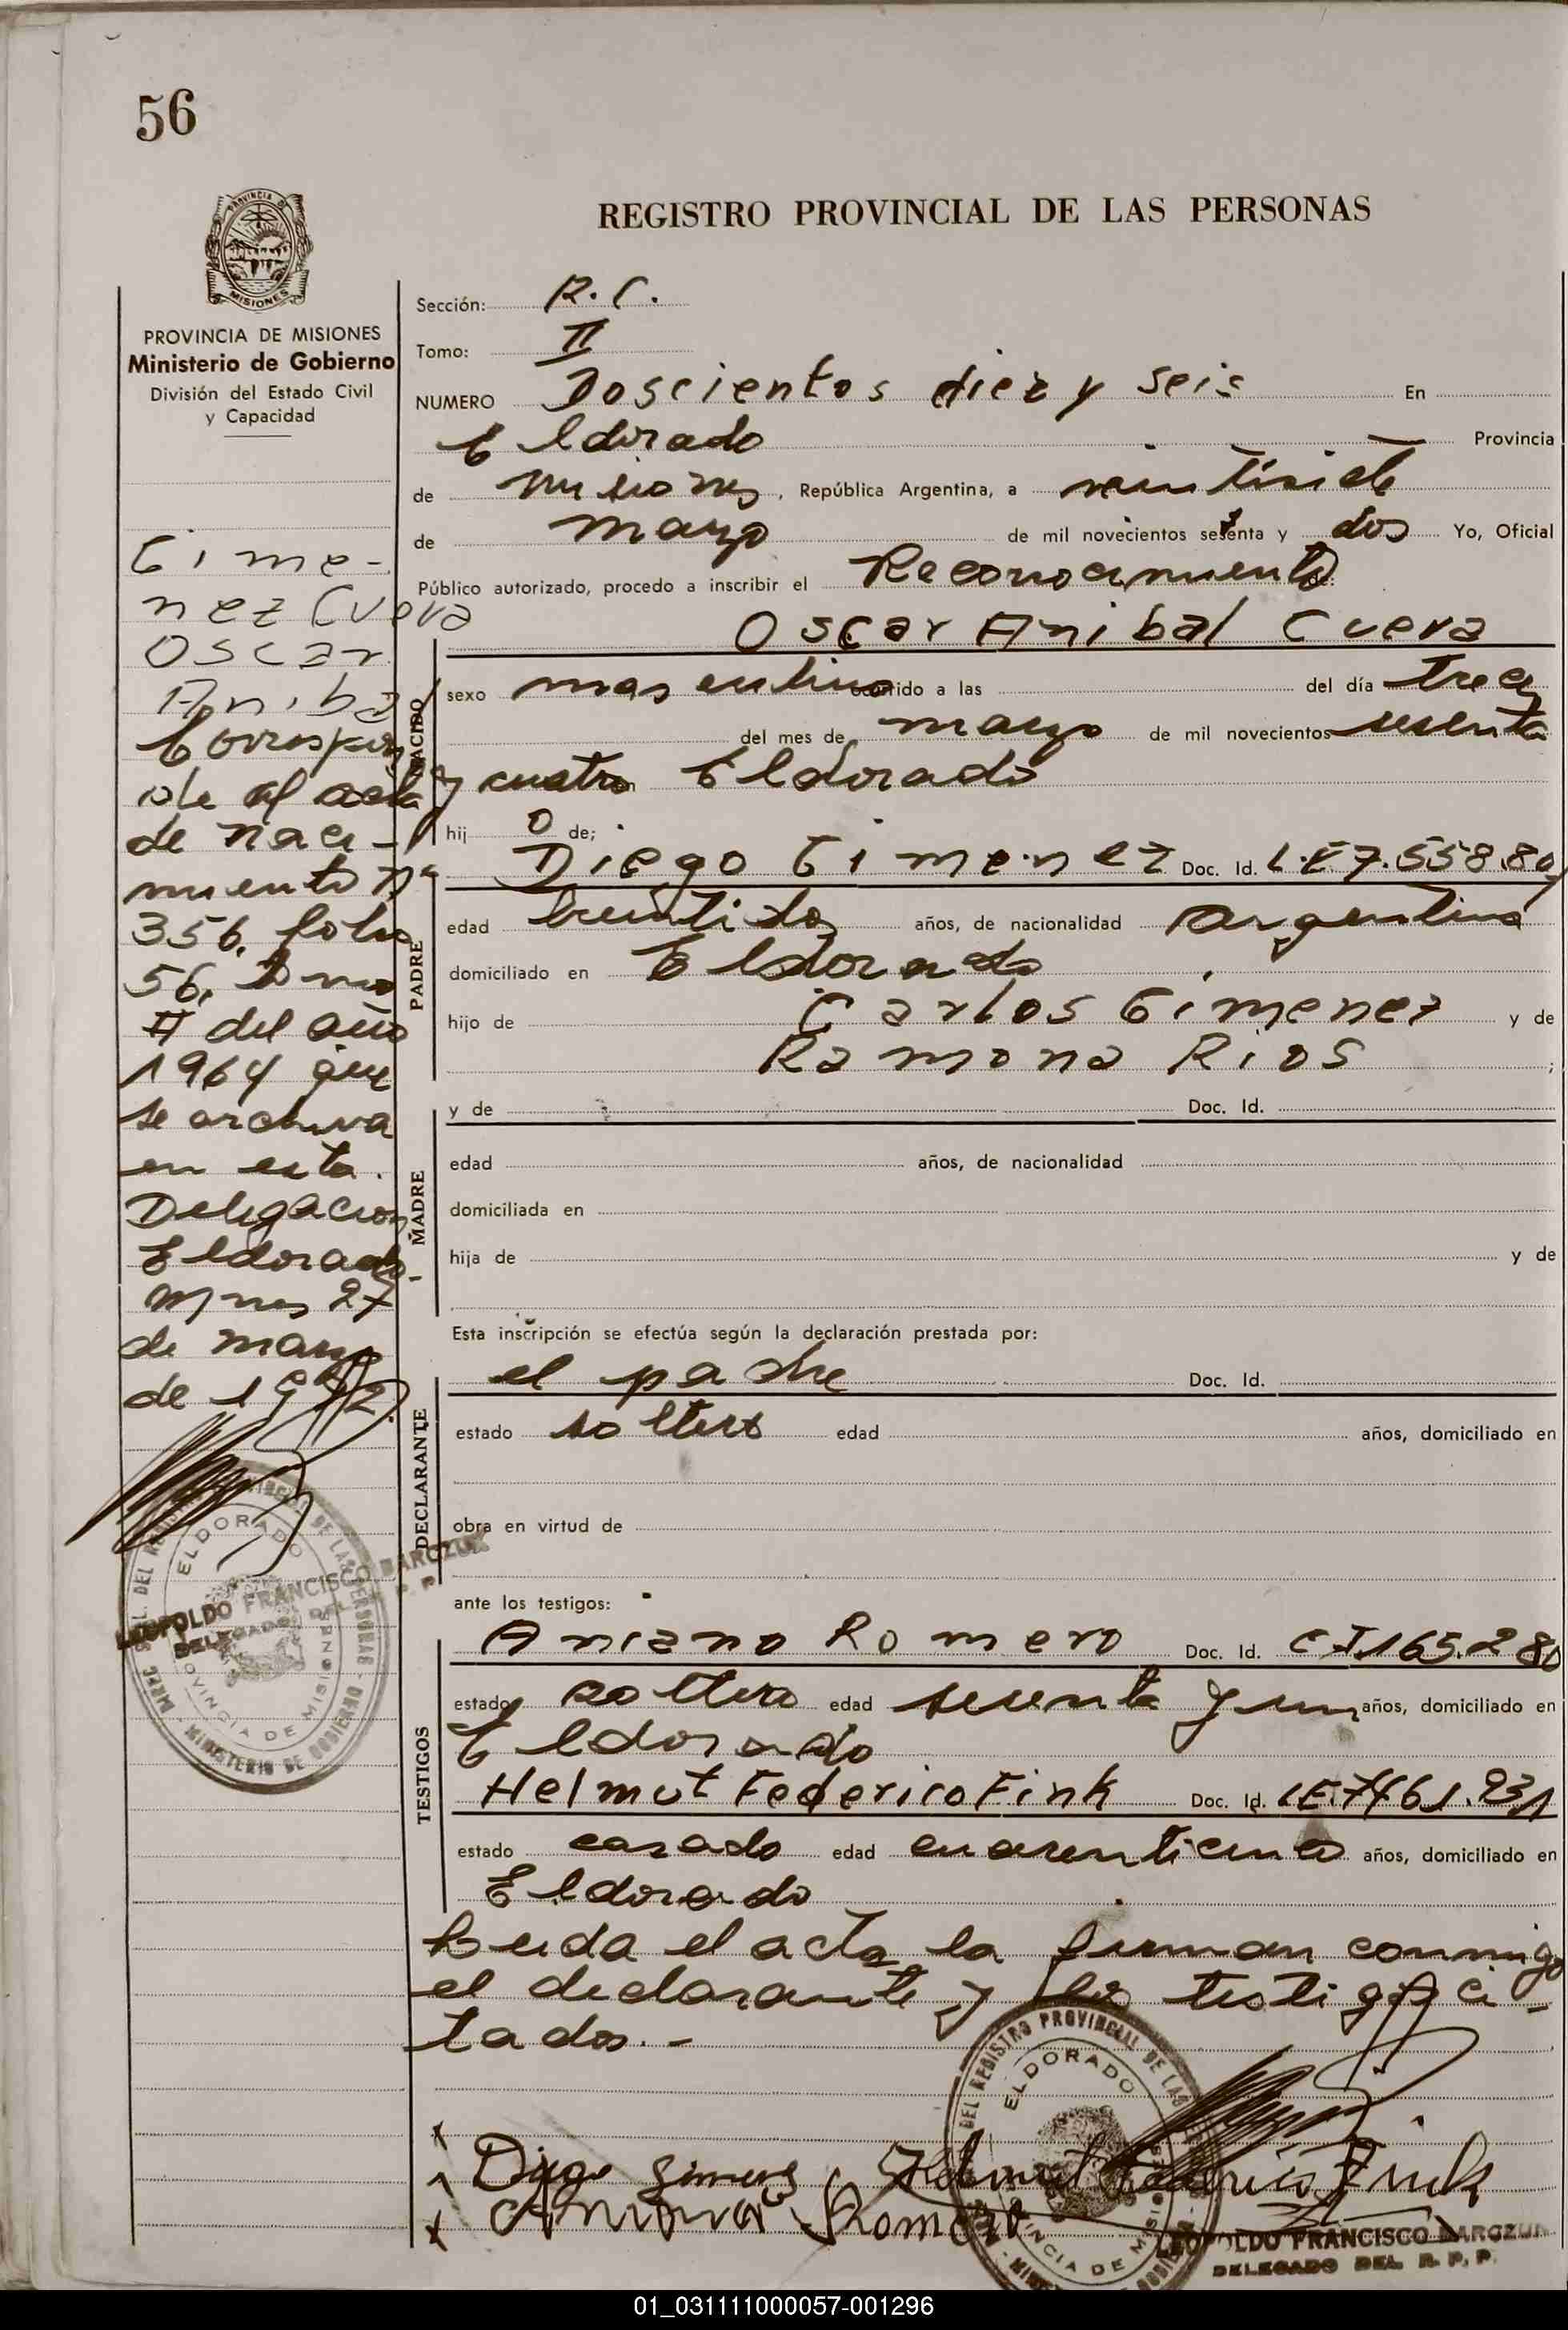 56
REGISTRO PROVINCIAL DE LAS PERSONAS
PROVINCIA DE MISIONES
MISIONES
PROVINCIA DE MISIONES
Ministerio de Gobierno
División del Estado Civil
y Capacidad
Gime-
nez Cueva
Oscar
Anibal
Correspon
de al acta
de naci-
miento Nº
356. folio
56. tomo
II del año
1964 que
se archiva
en esta.
Delegacion
Eldorado.
Mnes 27
de marzo
de 1972.
ELDORADO
PROVINCIA DE MISIONES
LEOPOLDO FRANCISCO BARCZUK
DELEGADO DEL R. P. P.
Sección: R.C.
Tomo: II
NUMERO Doscientos diez y seis En
Eldorado Provincia
de Misiones, República Argentina, a veintisiete
de marzo de mil novecientos setenta y dos Yo, Oficial
Público autorizado, procedo a inscribir el Reconocimiento de:
Oscar Anibal Cueva
NACIDO
sexo masculino ocurrido a las del día trece
del mes de marzo de mil novecientos sesenta
y cuatro Eldorado
hij o de;
PADRE
Diego Gimenez Doc. Id. L.E 7.558.80
edad treintidos años, de nacionalidad argentina
domiciliado en Eldorado
hijo de Carlos Gimenez y de
Ramona Rios ;
MADRE
y de Doc. Id.
edad años, de nacionalidad
domiciliada en
hija de y de
Esta inscripción se efectúa según la declaración prestada por:
DECLARANTE
el padre Doc. Id.
estado soltero edad años, domiciliado en
obra en virtud de
ante los testigos:
TESTIGOS
Aniano Romero Doc. Id. CI 165.280
estado soltero edad sesenta y un años, domiciliado en
Eldorado
Helmut Federico Fink Doc. Id. LE.7461.231
estado casado edad años, domiciliado en
Eldorado
Leida el acta la firman conmigo
el declarante y los testigos ci-
tados.-
DEL REGISTRO PROVINCIAL DE LAS
ELDORADO
PROVINCIA DE MISIONES
x Diego Gimenez Helmut Federico Fink
x Aniano Romero
LEOPOLDO FRANCISCO BARCZUK
DELEGADO DEL R. P. P.
01_031111000057-001296